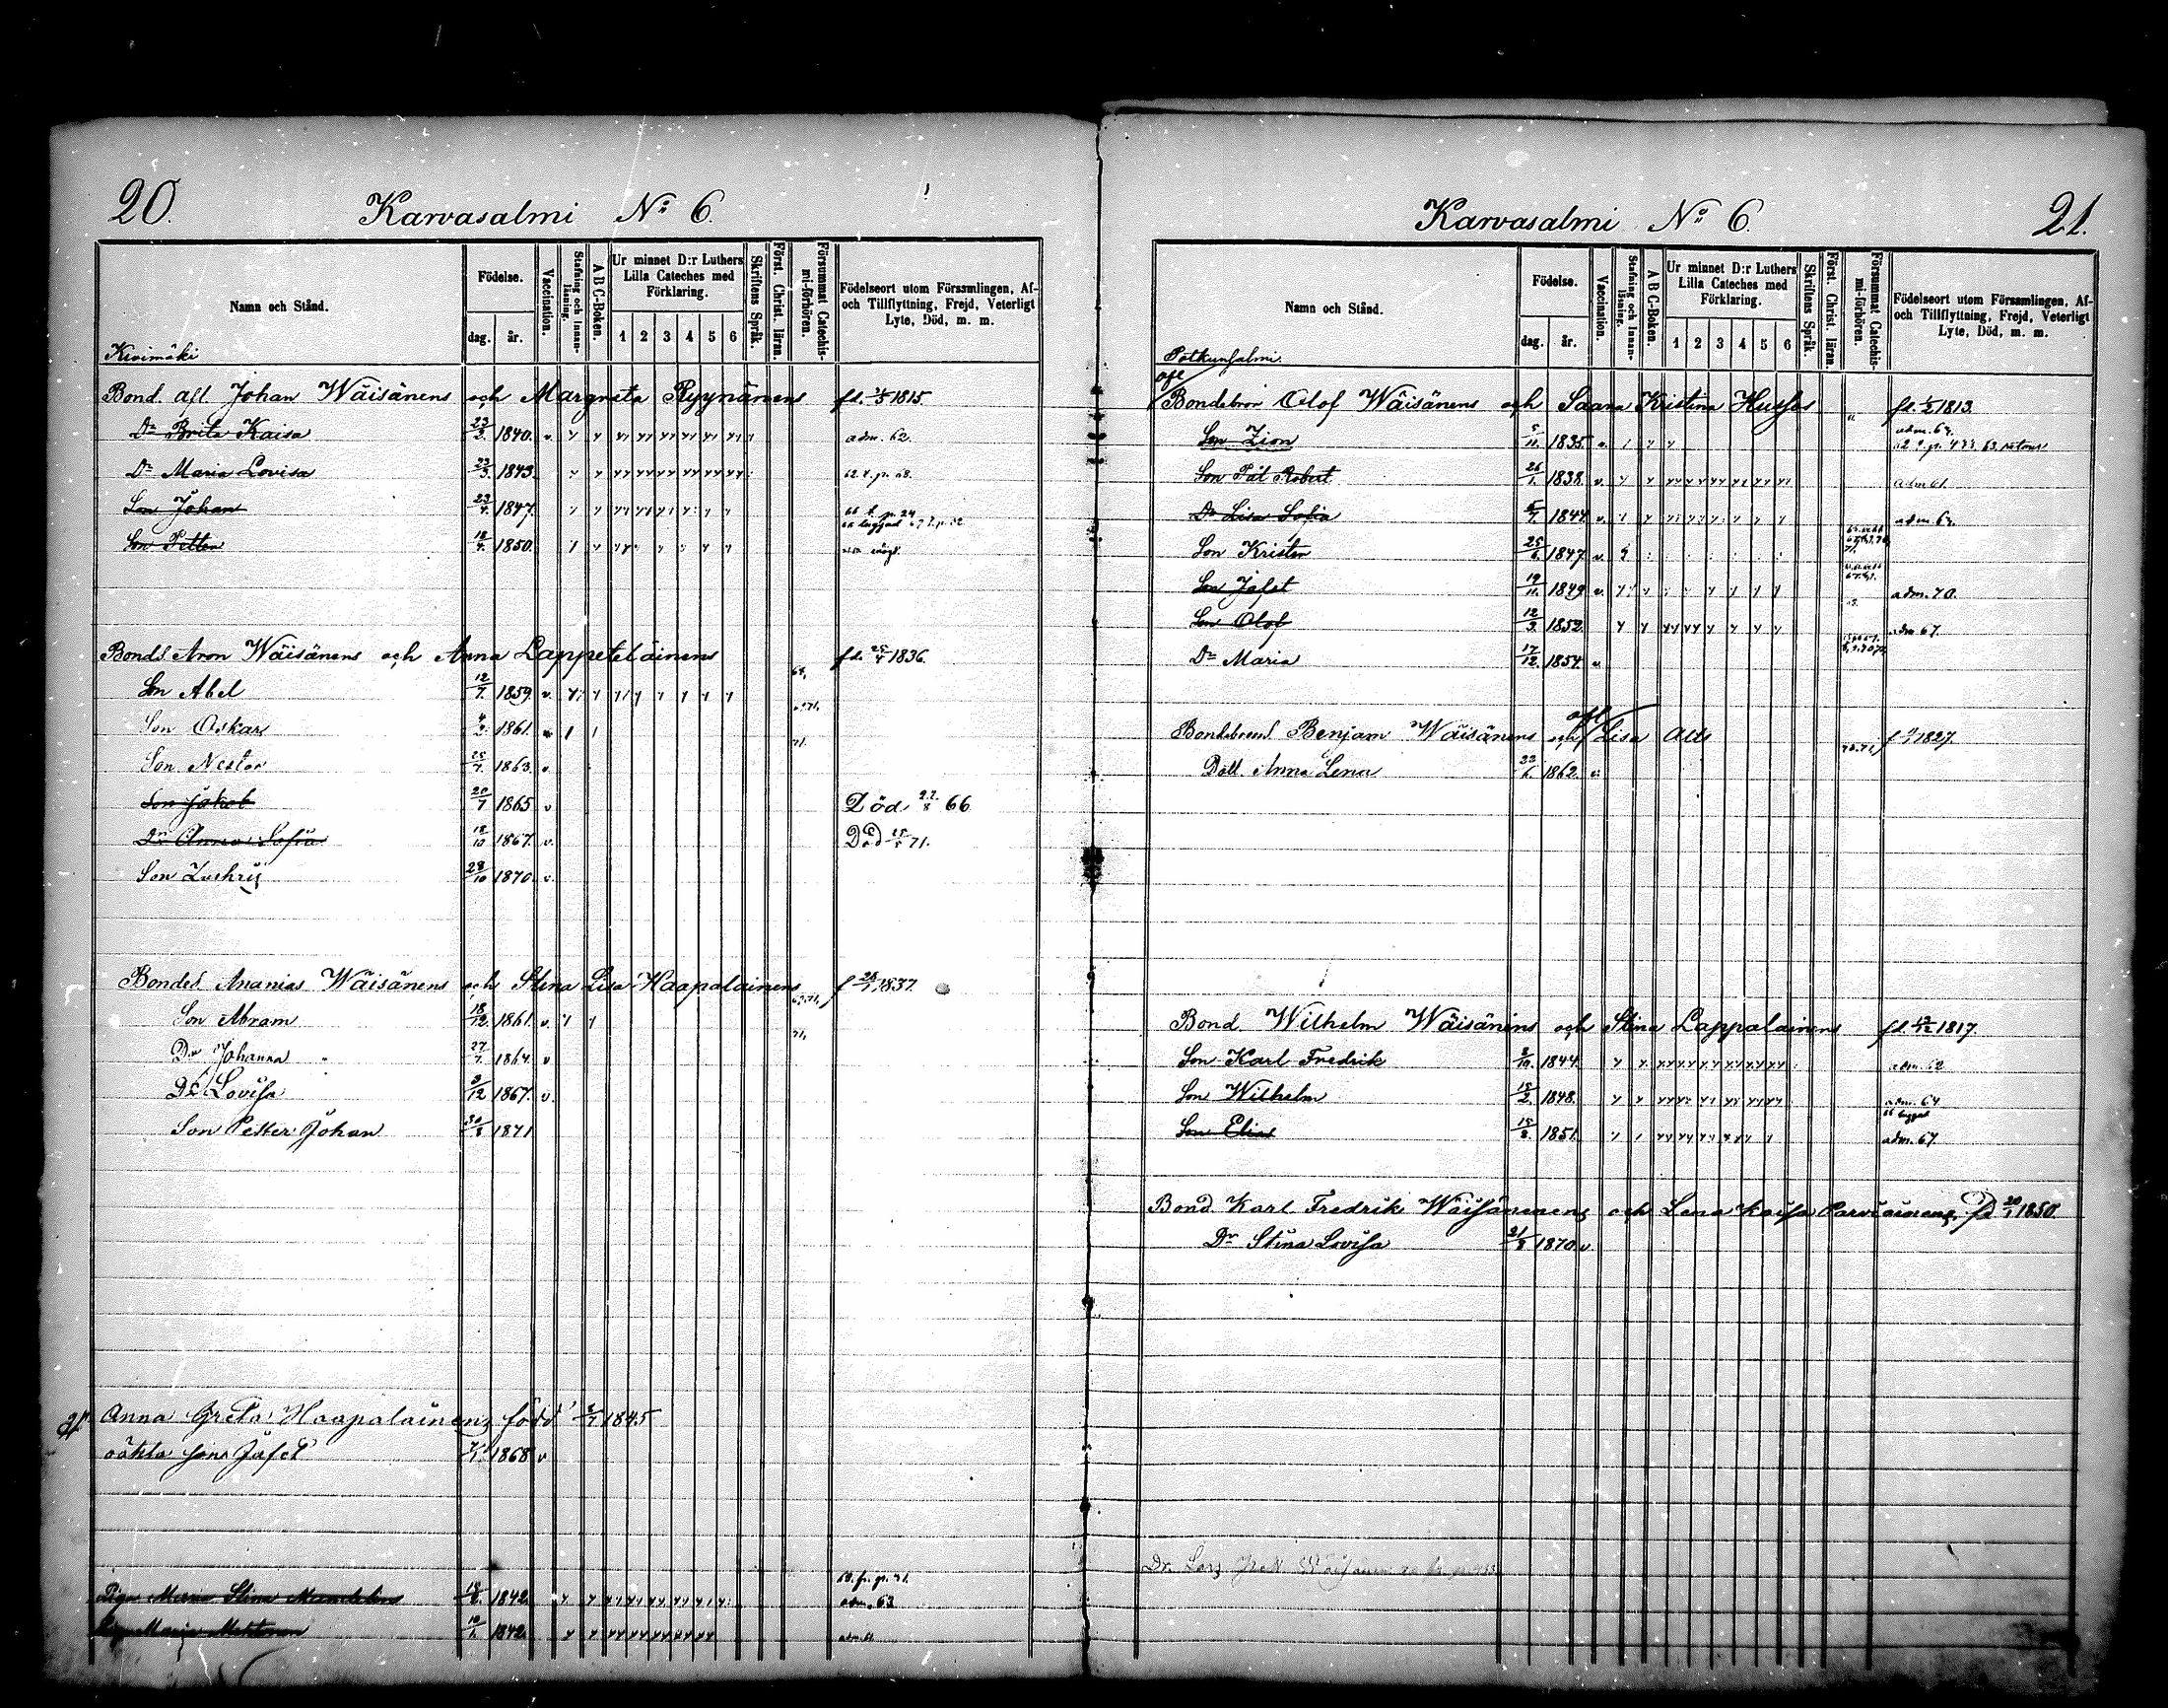 20.
Karvasalmi No 6.
Namn och Stånd.
Födelse.
dag. år.
Vaccination.
Stafning och Innan-läsning.
A B C-Boken.
Ur minnet D:r Luthers Lilla Cateches med Förklaring.
1 2 3 4 5 6
Skriftens Språk.
Först. Christ. läran.
Försummat Catechis-mi-förhören.
Födelseort utom Församlingen, Af- och Tillflyttning, Frejd, Veterligt Lyte, Död, m. m.
Kivimäki
Bond. afl. Johan Wäisänens och Margreta Ryynänens fd. 1815.
Dr Brita Kaisa 23/3. 1840. v. adm. 62.
Dr Maria Lovisa 23/3. 1843.
Son Johan 23/4. 1847.
Son Petter 18/4. 1850.
Bonds. Aron Wäisänens och Anna Lappeteläinens fd. 25/4 1836.
Son Abel 12/7. 1859. v.
Son Oskar 4/3. 1861.
Son Nestor 25/7. 1863. v
Son Jakob 20/7 1865 v Död 22/8 66
Dr Anna Sofia 18/10 1867. v. Död 71.
Son Zachris 28/10 1870. v.
Bondes. Ananias Wäisänens och Stina Lisa Haapalainens f 1837.
Son Abram 18/12. 1861. v.
Dr Johanna 27/7. 1864. v
Dr Lovisa 9/12 1867. v.
Son Petter Johan 30/8 1871
Anna Greta Haapalainens född 1845
oäkta son Jafet 1868 v
Piga Stina 18/8. 1842. adm. 63
Piga Maria 1842.
Karvasalmi No 6.
21.
Namn och Stånd.
Födelse.
dag. år.
Vaccination.
Stafning och Innan-läsning.
A B C-Boken.
Ur minnet D:r Luthers Lilla Cateches med Förklaring.
1 2 3 4 5 6
Skriftens Språk.
Först. Christ. läran.
Försummat Catechis-mi-förhören.
Födelseort utom Församlingen, Af- och Tillflyttning, Frejd, Veterligt Lyte, Död, m. m.
Potkunsalmi.
afl
Bondebror Olof Wäisänens och Saara Kristina Husso fd. 1/2 1813.
Son Zion 5/11. 1835. v.
Son Pål Robert 26/1. 1838. v. adm 61.
Dr Lisa Sofia 1844. v. adm. 64.
Son Krister 25/6. 1847. v.
Son Jafet 19/11. 1849 v. adm. 70.
Son Olof 12/3. 1852. adm 67.
Dr Maria 17/12. 1854. v
afl
Bondebrors Benjam Wäisänens och Lisa f 1827.
Dott. Anna Lena 22/6. 1862. v.
Bond Wilhelm Wäisänens och Stina Lappalainens fd. 1817.
Son Karl Fredrik 8/10. 1844. adm. 62
Son Wilhelm 18/2. 1848. adm. 64
Son Elias 1851. adm. 67.
Bond Karl Fredrik Wäisänenens och Lena Kaisa Parviainens fd 1850.
Dr Stina Lovisa 21/8 1870 v.